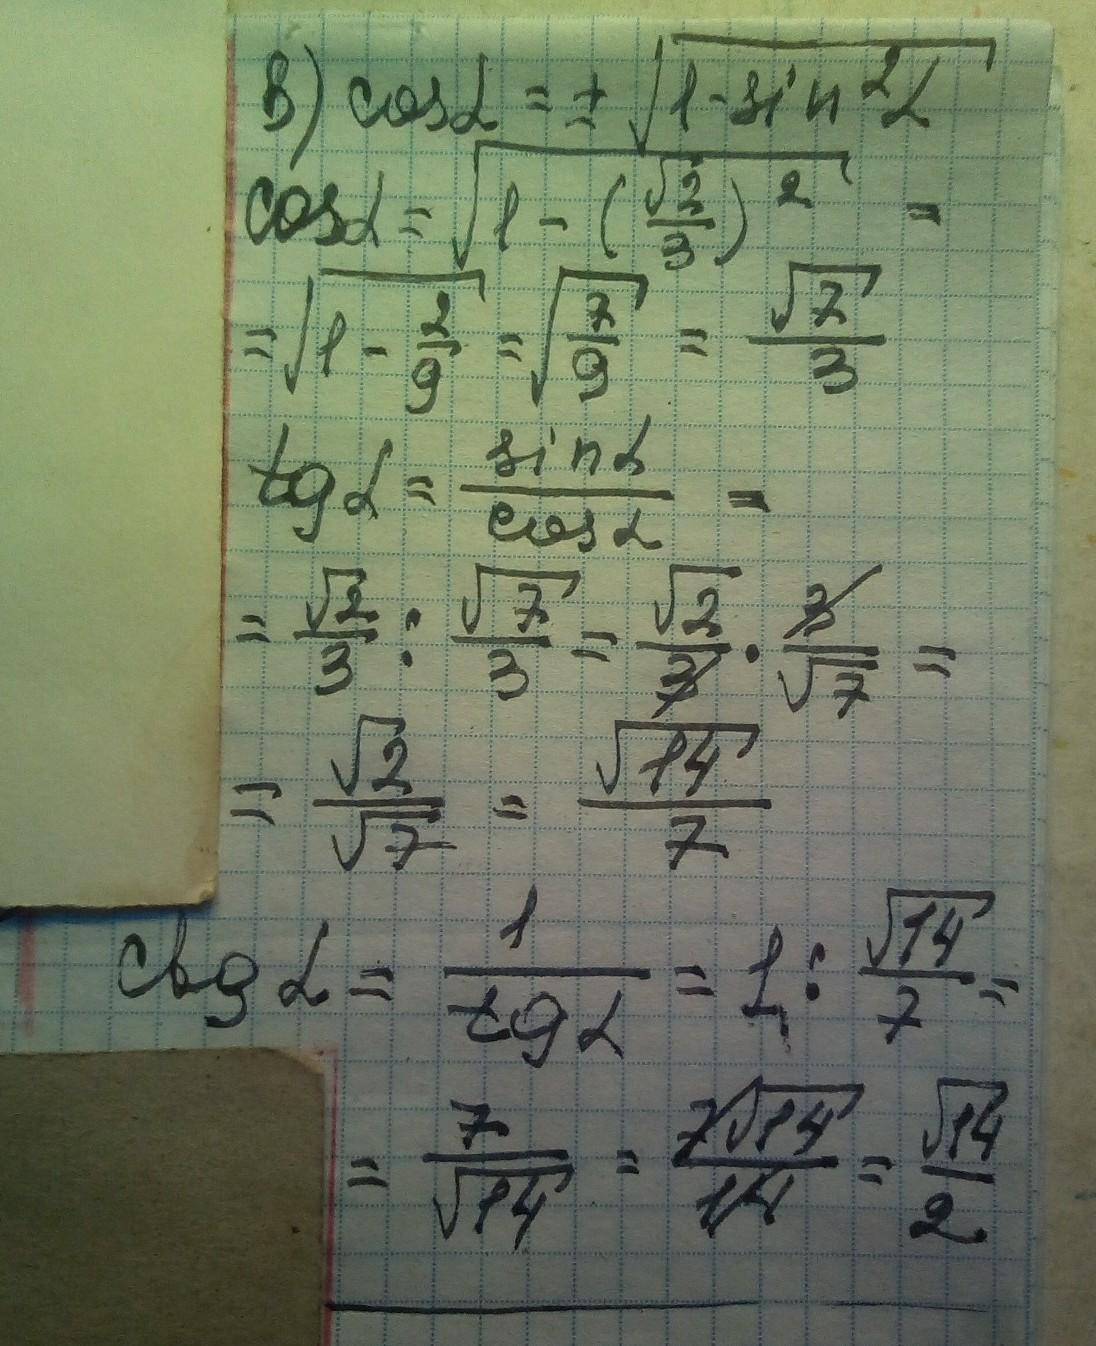 В) cosα = ± √(1-sin²α)
cosα = √(1 - (√2/3)²) =
= √(1 - 2/9) = √(7/9) = √7/3
tgα = sinα/cosα =
= √2/3 : √7/3 = √2/3 · 3/√7 =
= √2/√7 = √14/7
ctgα = 1/tgα = 1 : √14/7 =
= 7/√14 = 7√14/14 = √14/2